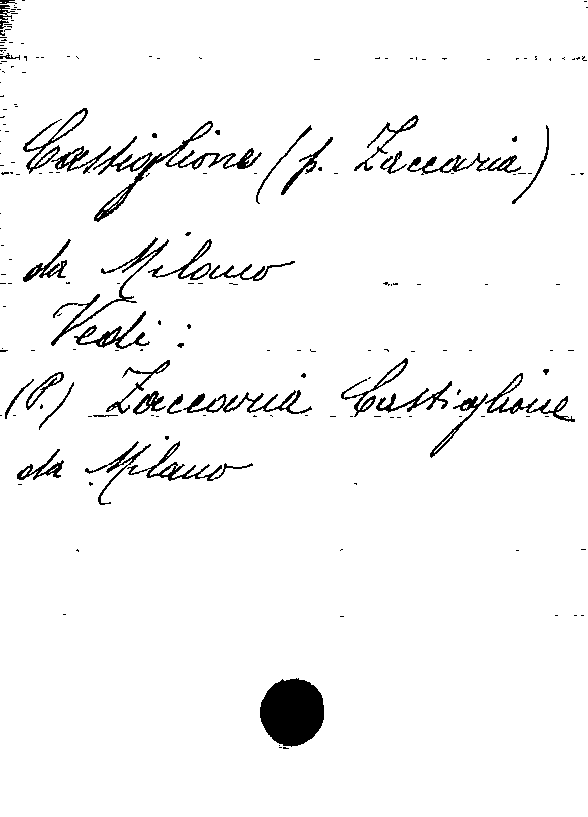 Castiglione (p. Zaccaria)
da Milano
Vedi:
(P.) Zaccaria Castiglione
da Milano